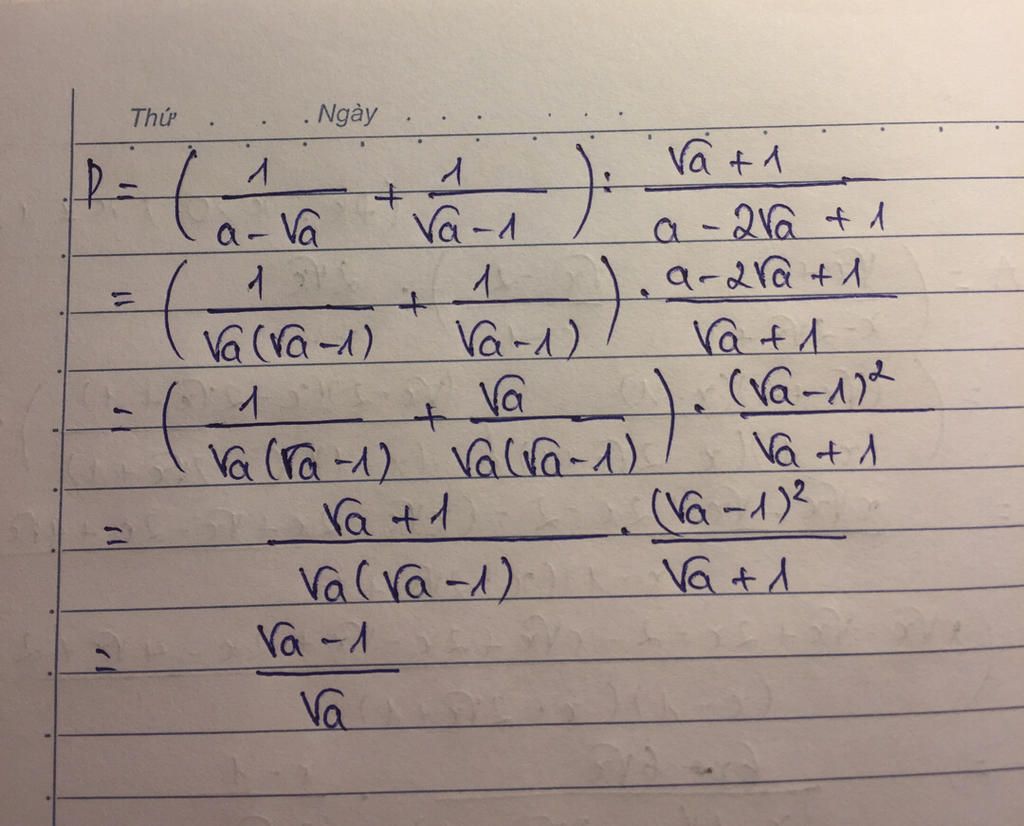 Thứ . . . . Ngày . . . . . . . .
P = ( 1/(a - √a) + 1/(√a - 1) ) : (√a + 1)/(a - 2√a + 1)
= ( 1/(√a(√a - 1)) + 1/(√a - 1)) ) . (a - 2√a + 1)/(√a + 1)
= ( 1/(√a(√a - 1)) + √a/(√a(√a - 1)) ) . (√a - 1)²/(√a + 1)
= (√a + 1)/(√a(√a - 1)) . (√a - 1)²/(√a + 1)
= (√a - 1)/√a